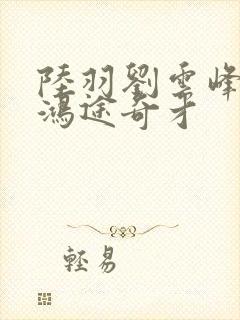 陸羽劉雲峰
鴻途奇才
輕易